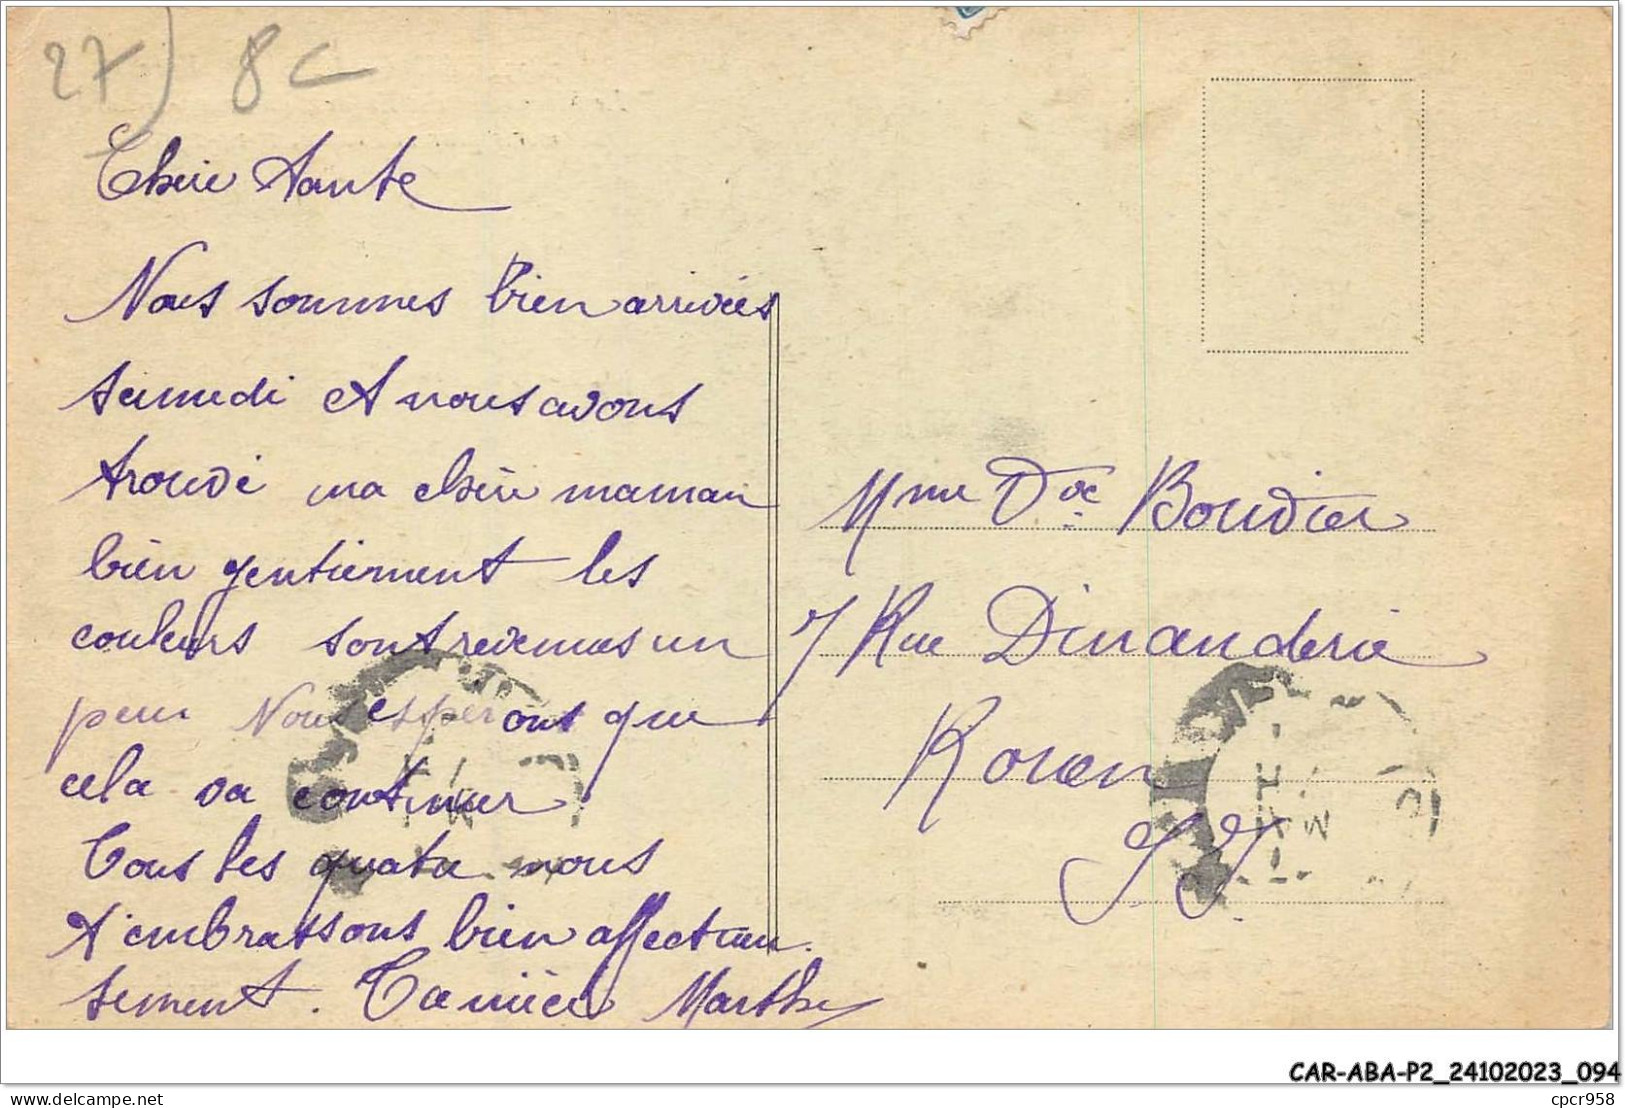 27) 8c
Chère Tante
Nous sommes bien arrivées
samedi et nous avons
trouvé ma chère maman
bien gentiement les
couleurs sont revenues un
peu Nous espérons que
cela va continuer
Tous les quatre nous
t'embrassons bien affectueu
sement. Ta nièce Marthe
Mme Vve Boudier
7 Rue Dinanderie
Rouen
S. I.
CAR-ABA-P2_24102023_094
delcampe.net
cpcr958